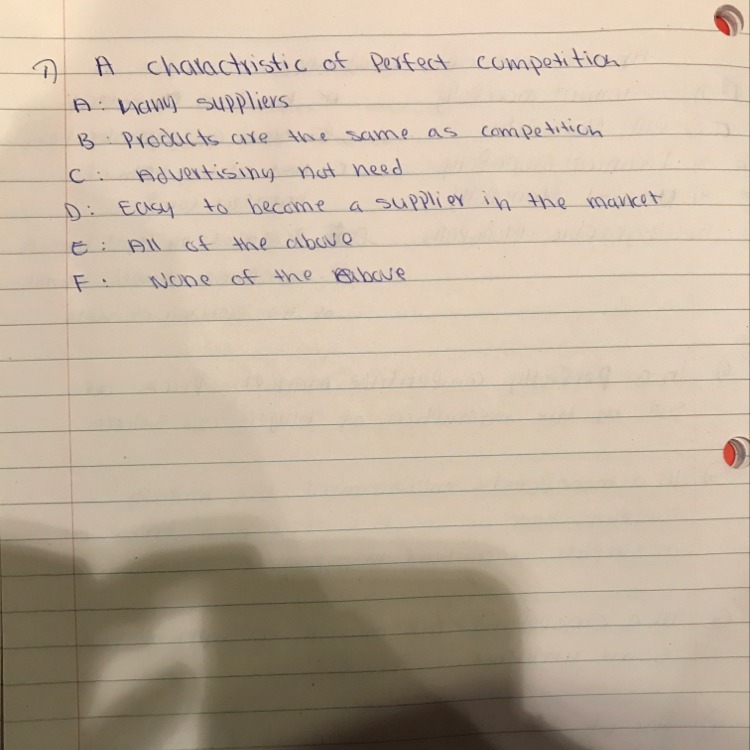 1) A charactristic of perfect competition
A: Many suppliers
B: Products are the same as competition
C: Advertising not need
D: Easy to become a supplier in the market
E: All of the above
F: None of the above